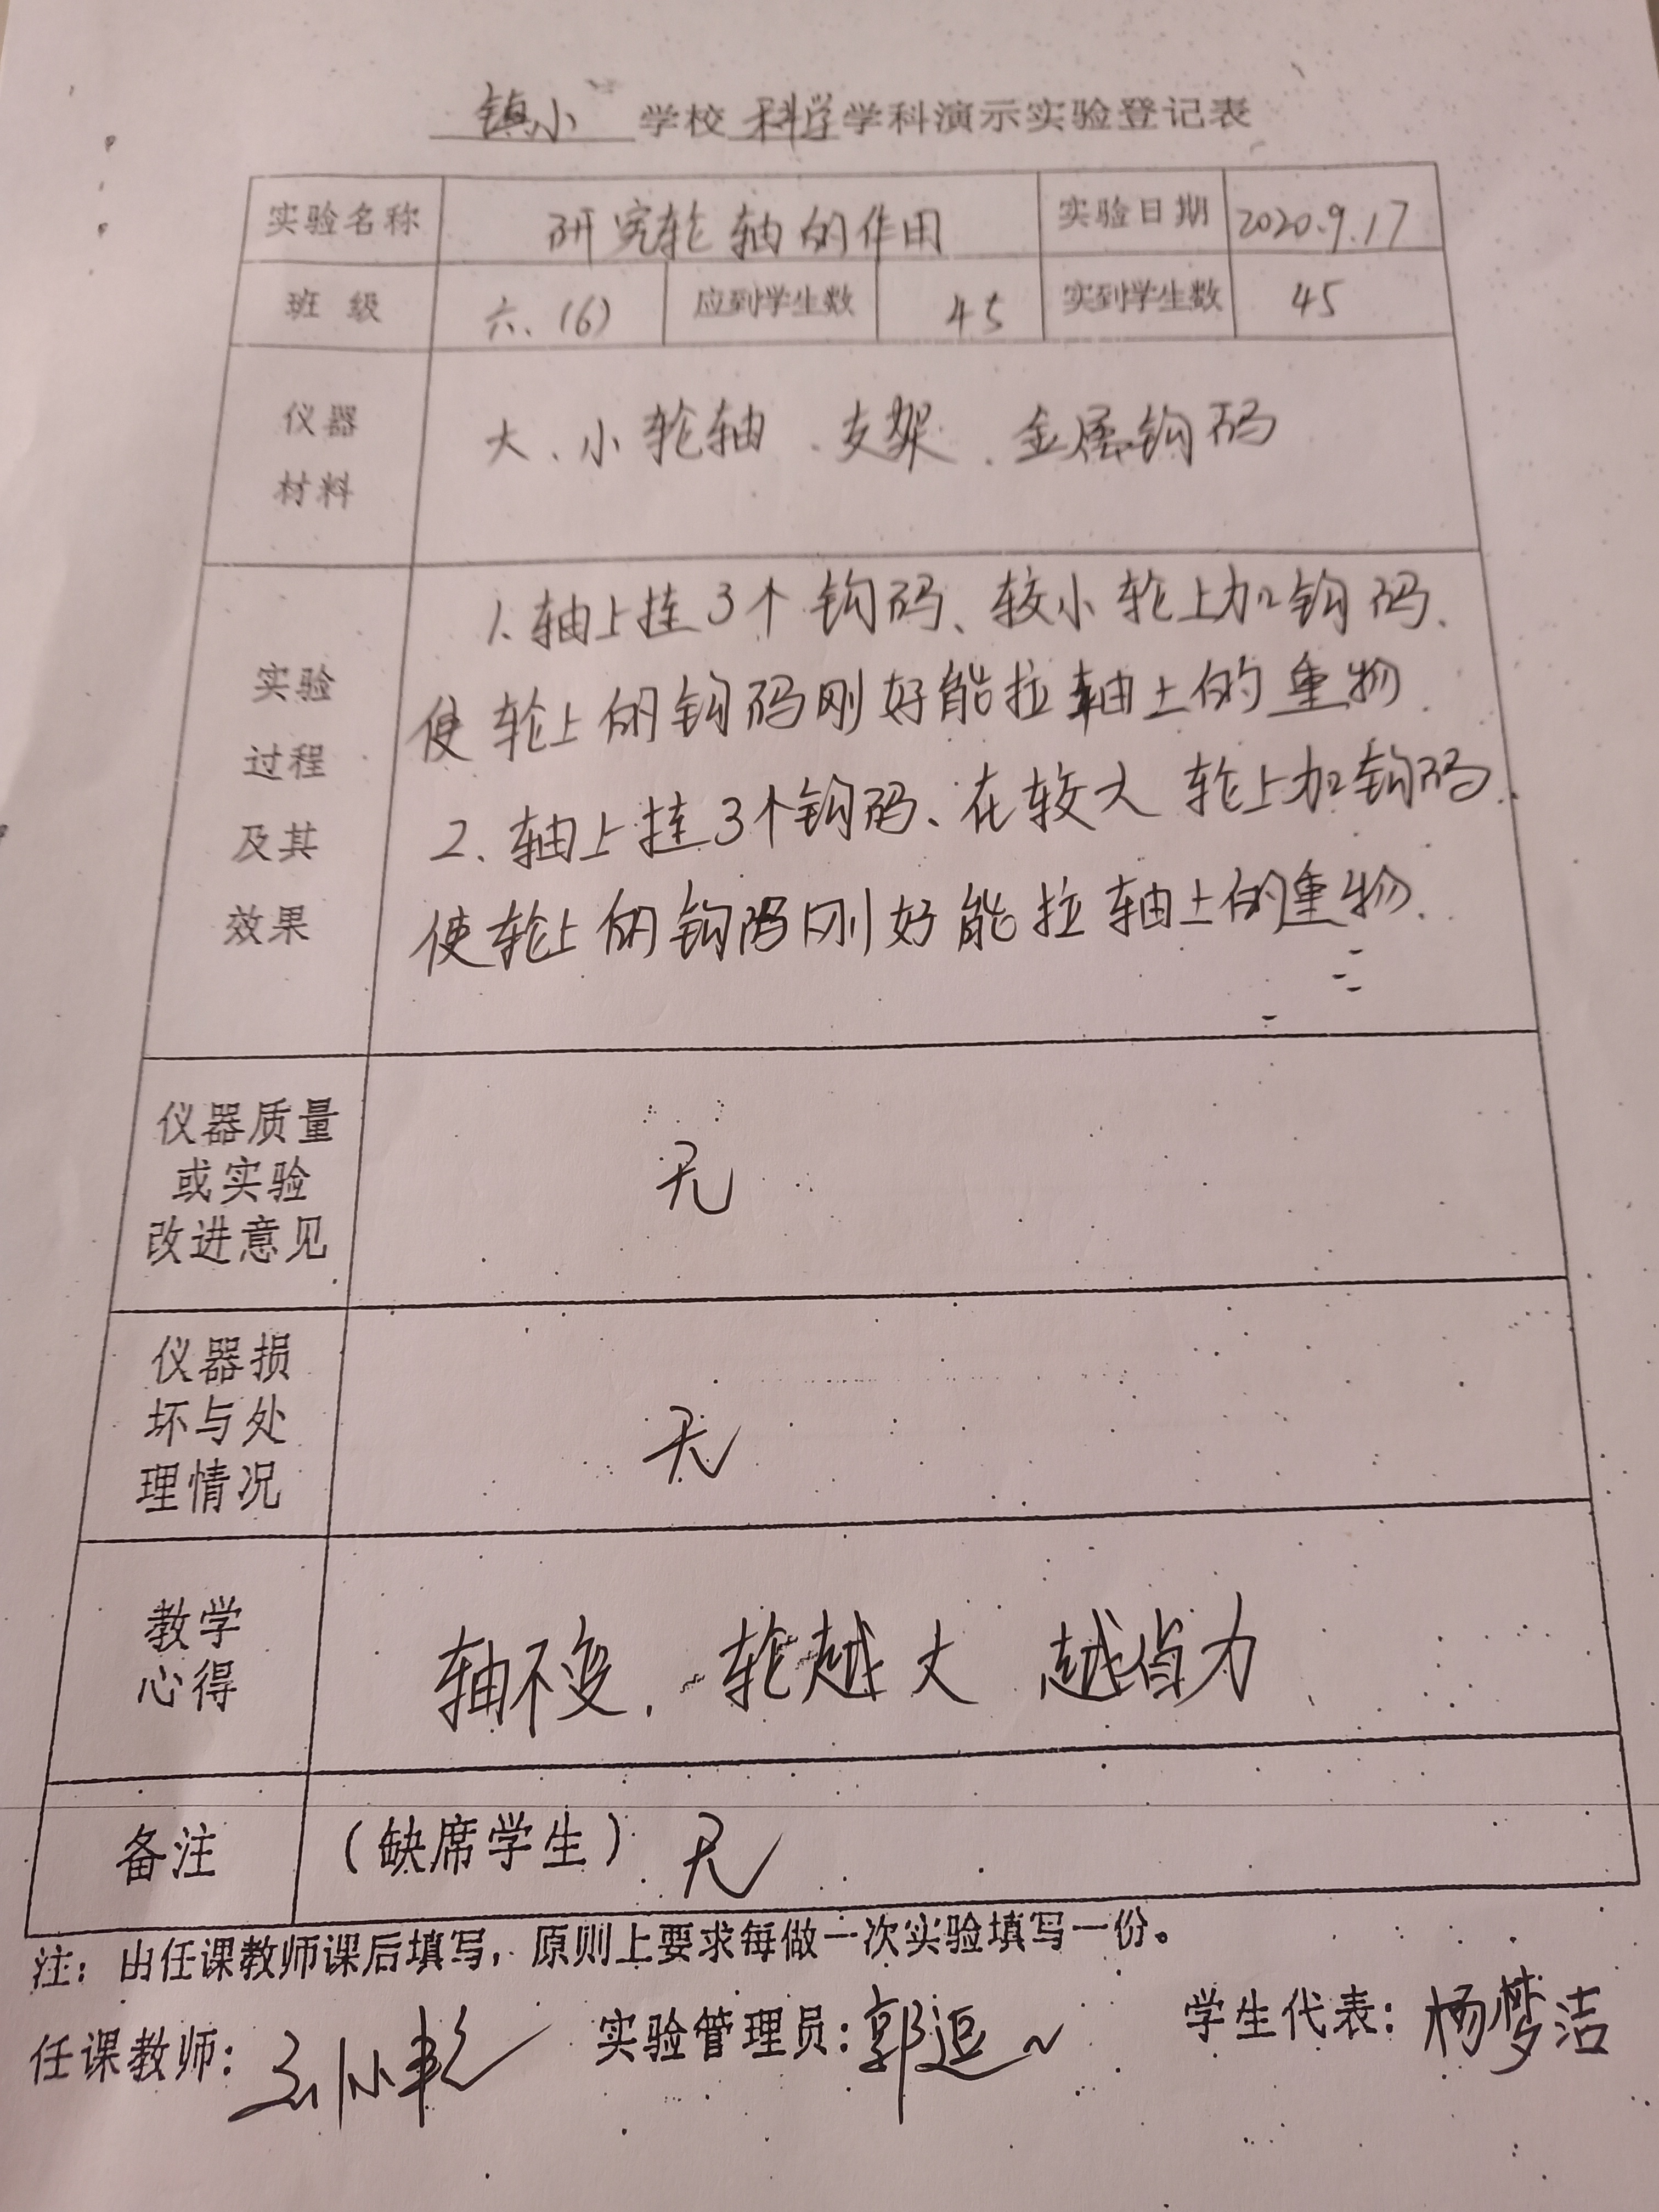 镇小 学校 科学 学科演示实验登记表
实验名称 研究轮轴的作用 实验日期 2020.9.17
班 级 六、(6) 应到学生数 45 实到学生数 45
仪器
材料
大、小轮轴、支架、金属钩码
实验
过程
及其
效果
1、轴上挂3个钩码、较小轮上加钩码、
使轮上的钩码刚好能拉轴上的重物.
2、轴上挂3个钩码、在较大轮上加钩码.
使轮上的钩码刚好能拉轴上的重物.
仪器质量
或实验
改进意见
无
仪器损
坏与处
理情况
无
教学
心得
轴不变. 轮越大 越省力
备注 (缺席学生) 无
注: 由任课教师课后填写, 原则上要求每做一次实验填写一份。
任课教师: 实验管理员: 郭 学生代表: 杨梦洁